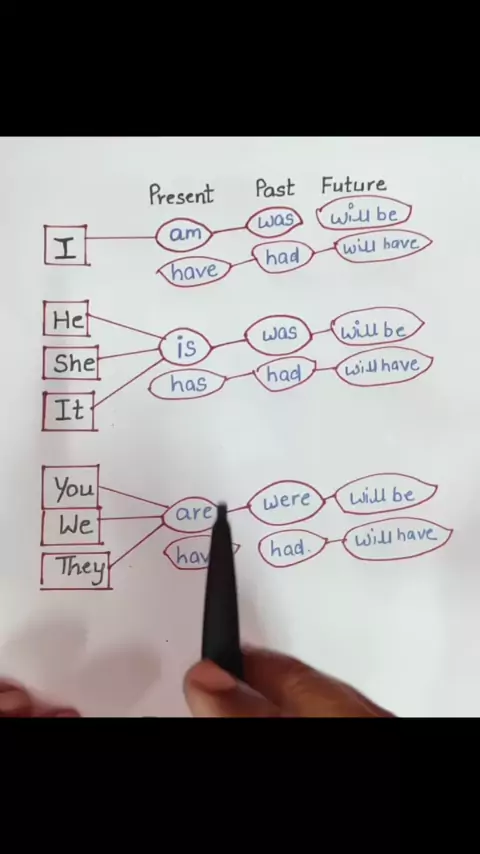 Present Past Future
I am was will be
have had will have
He
She is was will be
It has had will have
You
We are were will be
They had. will have